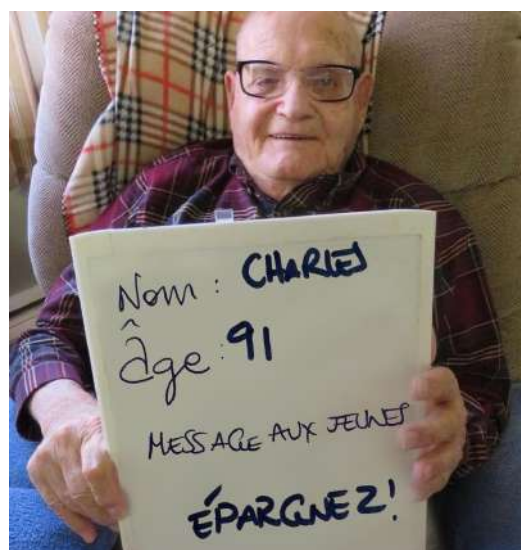 Nom : CHARLES
âge : 91
MESSAGE AUX JEUNES
ÉPARGNEZ!